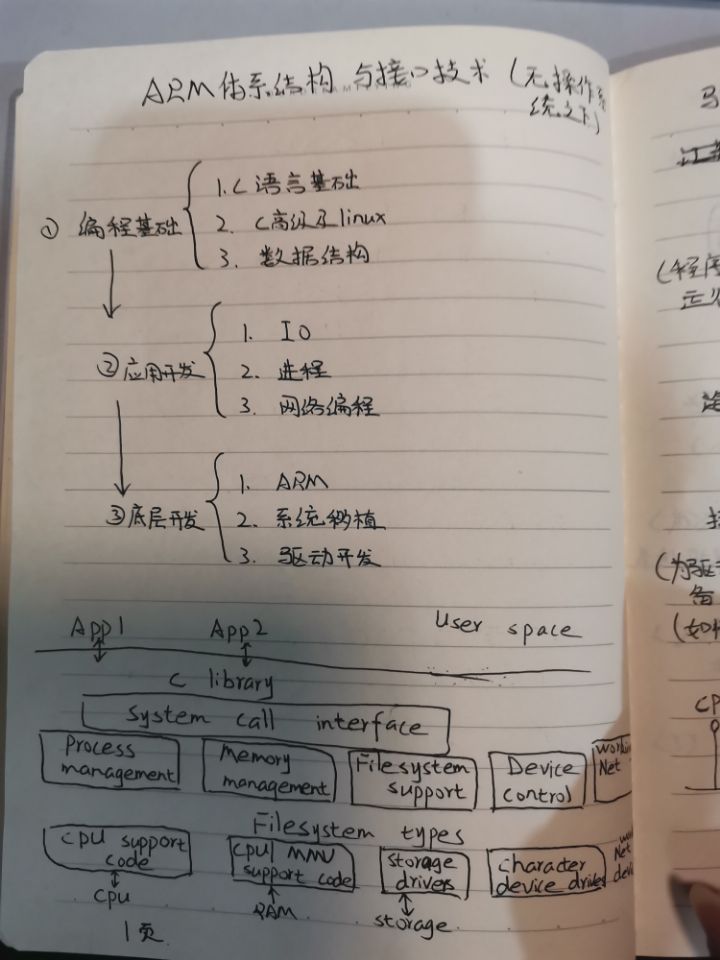 ARM体系结构与接口技术（无操作系
统之下）
1. C语言基础
① 编程基础
2. C高级及linux
3. 数据结构
1. IO
② 应用开发
2. 进程
3. 网络编程
1. ARM
③ 底层开发
2. 系统移植
3. 驱动开发
App1 App2 User space
C library
System call interface
Process
management
Memory
management
Filesystem
support
Device
control
Net
Filesystem types
CPU support
code
CPU/MMU
support code
Storage
drivers
Character
device drives
Net
devi
CPU
RAM
storage
1页
(程序
(为驱
备
(如
CP